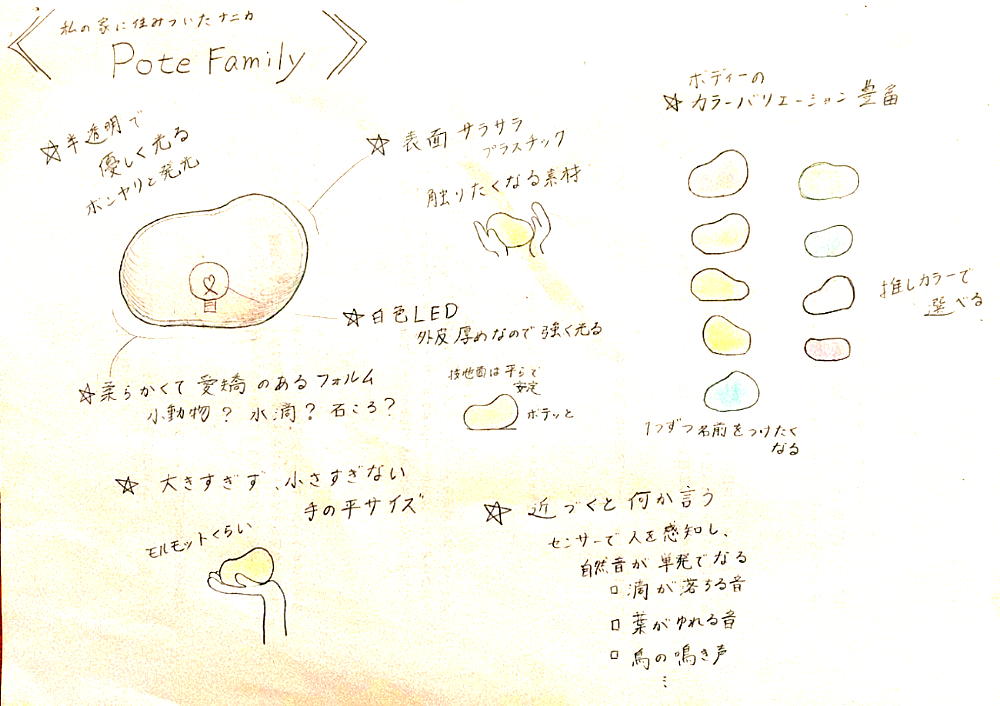 私の家に住みついたナニカ
Pote Family
☆半透明で
優しく光る
ボンヤリと発光
☆ 表面 サラサラ
プラスチック
触りたくなる素材
☆白色LED
外皮厚めなので強く光る
☆柔らかくて愛嬌のあるフォルム
小動物? 水滴? 石ころ?
接地面は平らで
安定
ボテッと
☆ 大きすぎず、小さすぎない
手の平サイズ
モルモットくらい
ボディーの
☆ カラーバリエーション 豊富
推しカラーで
選べる
1つずつ名前をつけたく
なる
☆ 近づくと何か言う
センサーで人を感知し、
自然音が単発でなる
□ 滴が落ちる音
□ 葉がゆれる音
□ 鳥の鳴き声
⋮